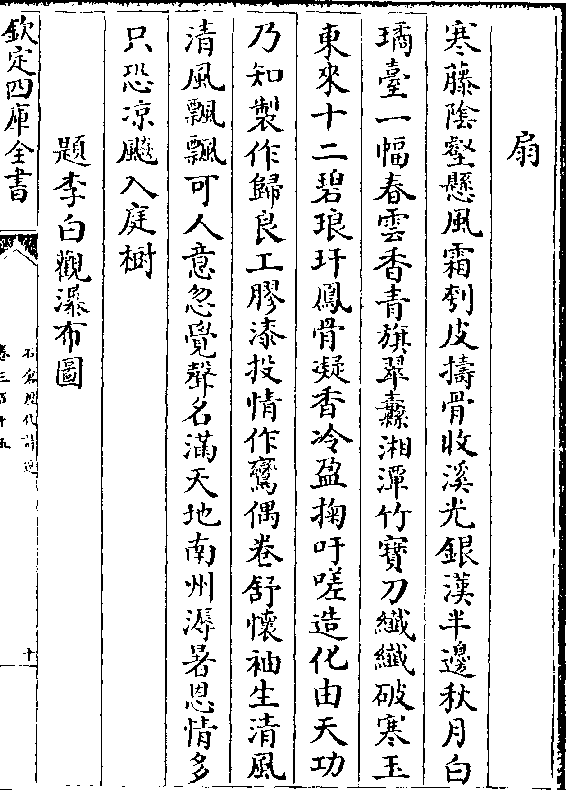 扇
寒藤陰壑懸風霜刳皮擣骨收溪光銀漢半邊秋月白
璚臺一幅春雲香青旗翠纛湘潭竹寳刀纎纎破寒玉
東來十二碧琅玕鳳骨凝香冷盈掬吁嗟造化由天功
乃知製作歸良工膠漆投情作鸞偶卷舒懐袖生清風
清風飄飄可人意忽覺聲名滿天地南州溽暑恩情多
只恐凉飈入庭樹
題李白觀瀑布圖
欽定四庫全書
石倉歴代詩選
卷三百十五
十